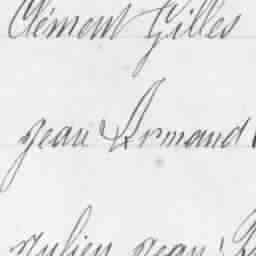 Clément Gilles
jean Armand
julien jean